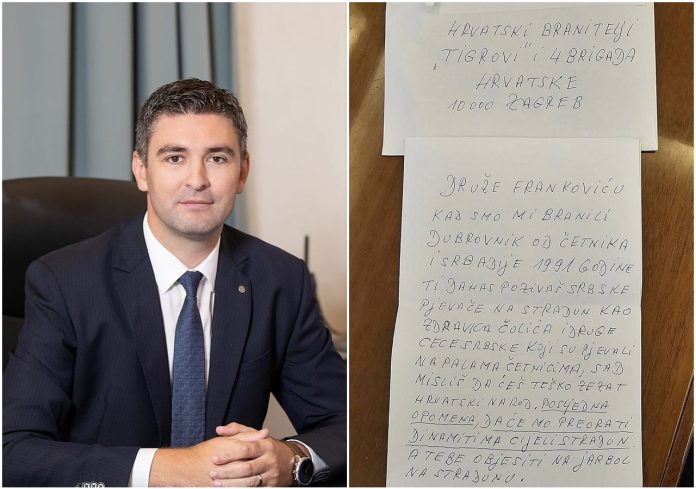 HRVATSKI BRANITELJI
„TIGROVI" I 4 BRIGADA
HRVATSKE
10000 ZAGREB
DRUŽE FRANKOVIĆU
KAD SMO MI BRANILI
DUBROVNIK OD ČETNIKA
I SRBADIJE 1991 GODINE
TI DANAS POZIVAŠ SRBSKE
PJEVAČE NA STRADUN KAO
ZDRAVKA ČOLIĆA I DRUGE
CECE SRBSKE KOJI SU PJEVALI
NA PALAMA ČETNICIMA, SAD
MISLIŠ DA ĆEŠ TEŠKO ZEZAT
HRVATSKI NAROD. POSLJEDNA
OPOMENA, DA ĆEMO PREORATI
DINAMITIMA CIJELI STRADUN
A TEBE OBJESITI NA JARBOL
NA STRADUNU.